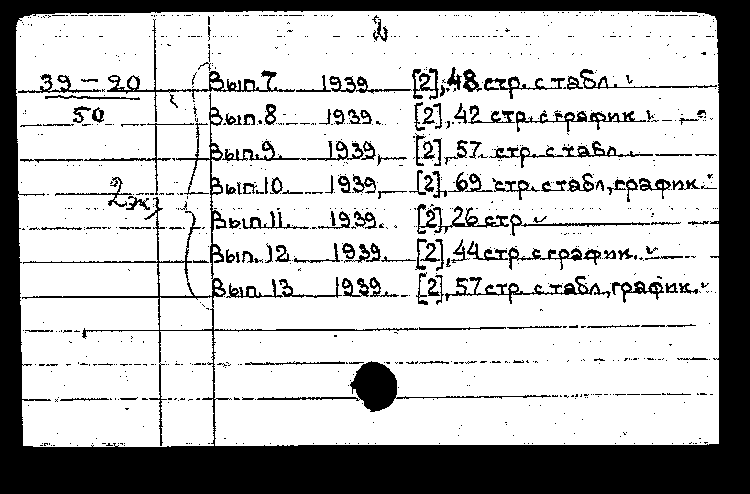 2
39-20
50
2 экз
Вып.7 1939. [2], 48 стр. с табл.
Вып.8 1939. [2], 42 стр. с график
Вып.9. 1939, [2], 57. стр. с табл.
Вып.10. 1939, [2], 69 стр. с табл, график.
Вып.11. 1939. [2], 26 стр.
Вып.12. 1939. [2], 44 стр. с график.
Вып.13 1939. [2], 57 стр. с табл, график.